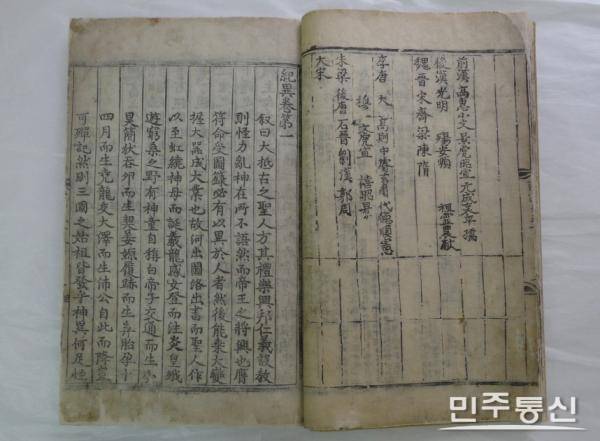 前漢 高惠小文景虎昭宣元成哀平孺
後漢光明 章安順 桓靈農獻
魏晉宋齊梁陳隋
李唐 太 高則中睿玄肅代德順憲
穆 文虎宣 禧昭景
朱梁後唐石晉劉漢郭周
大宋
紀異卷第一
叙曰大抵古之聖人方其禮樂興邦仁義設教
則怪力亂神在所不語然而帝王之將興也膺
符命受圖籙必有以異於人者然後能乘大變
握大器成大業也故河出圖洛出書而聖人作
以至虹繞神母而誕羲龍感女登而注炎皇娥
遊窮桑之野有神童自稱白帝子交通而生小
昊簡狄吞卵而生契姜嫄履跡而生弃胎孕十
四月而生堯龍交大澤而生沛公自此而降豈
可殫記然則三國之始祖皆發乎神異何足怪
민주통신